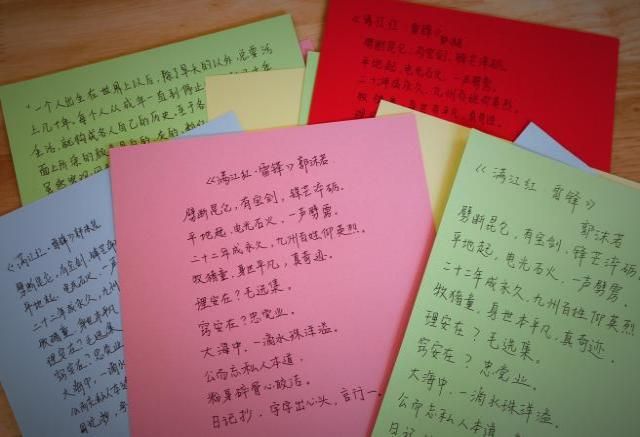 "一个人出生在世界上以后，除了早夭的以外，总要活
上几十年。每个人从成年一直到停止
生活，就构成各人自己的历史。至于各
《满江红 雷锋》郭沫若
劈断昆仑，有宝剑，锋芒淬砺。
平地起，电光石火，一声劈雳。
二十二年成永久，九州百姓仰英烈。
牧猪童，身世本平凡，真奇迹。
《满江红·雷锋》郭沫若
劈断昆仑，有宝剑，锋芒
平地起，电光石火，一声
二十二年成永久，九
牧猪童，身世本平凡
理安在？毛选集。
穷安在？忠党业。
大海中，一滴水
公而忘私人本道
日记抄，字
《满江红·雷锋》郭沫若
劈断昆仑，有宝剑，锋芒淬砺。
平地起，电光石火，一声劈雳。
二十二年成永久，九州百姓仰英烈。
牧猪童，身世平凡，真奇迹。
理安在？毛选集。
穷安在？忠党业。
大海中，一滴水珠洋溢。
公而忘私人本道，
粉身碎骨心皎洁。
日记抄，字字出心头，言行一。
《满江红 雷锋》
郭沫若
劈断昆仑，有宝剑，锋芒淬砺
平地起，电光石火，一声劈雳。
二十二年成永久，九州百姓仰英烈
牧猪童，身世本平凡，真奇迹。
理安在？毛选集。
穷安在？忠党业。
大海中，一滴水珠洋溢。
公而忘私人本道，
日记抄